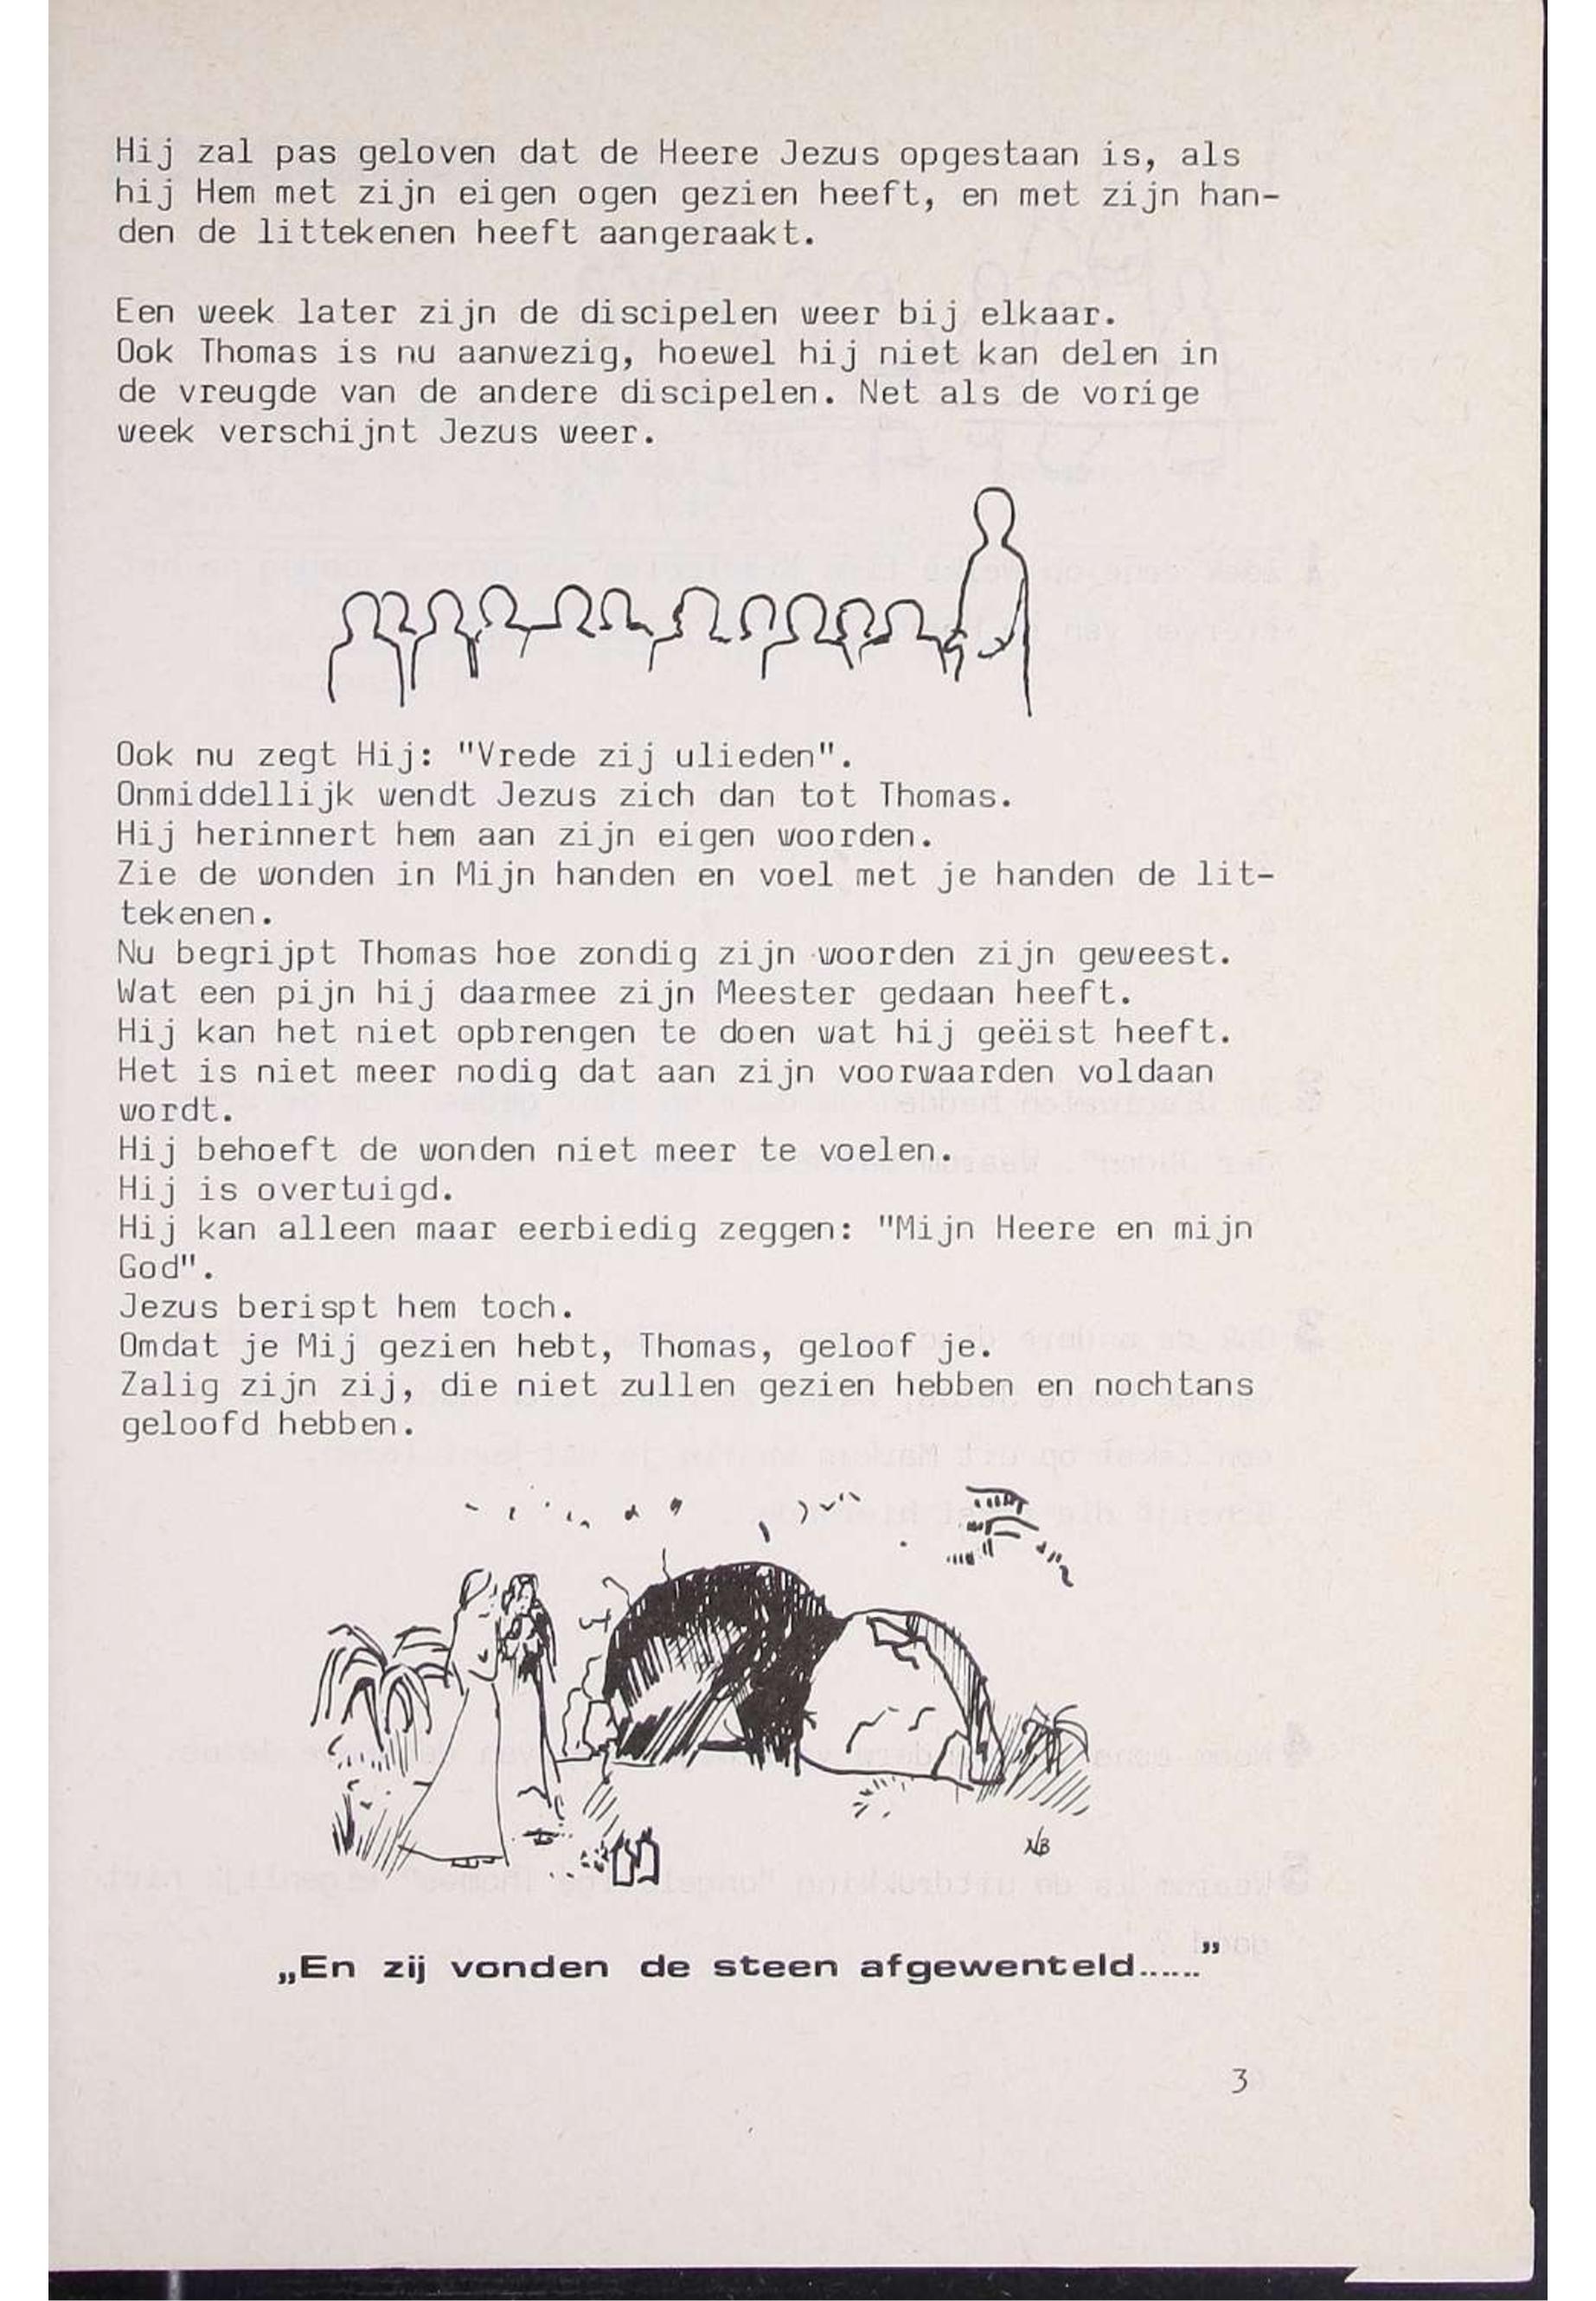 Hij zal pas geloven dat de Heere Jezus opgestaan is, als
hij Hem met zijn eigen ogen gezien heeft, en met zijn han-
den de littekenen heeft aangeraakt.
Een week later zijn de discipelen weer bij elkaar.
Ook Thomas is nu aanwezig, hoewel hij niet kan delen in
de vreugde van de andere discipelen. Net als de vorige
week verschijnt Jezus weer.
Ook nu zegt Hij: "Vrede zij ulieden".
Onmiddellijk wendt Jezus zich dan tot Thomas.
Hij herinnert hem aan zijn eigen woorden.
Zie de wonden in Mijn handen en voel met je handen de lit-
tekenen.
Nu begrijpt Thomas hoe zondig zijn woorden zijn geweest.
Wat een pijn hij daarmee zijn Meester gedaan heeft.
Hij kan het niet opbrengen te doen wat hij geëist heeft.
Het is niet meer nodig dat aan zijn voorwaarden voldaan
wordt.
Hij behoeft de wonden niet meer te voelen.
Hij is overtuigd.
Hij kan alleen maar eerbiedig zeggen: "Mijn Heere en mijn
God".
Jezus berispt hem toch.
Omdat je Mij gezien hebt, Thomas, geloof je.
Zalig zijn zij, die niet zullen gezien hebben en nochtans
geloofd hebben.
NB
„En zij vonden de steen afgewenteld......”
3